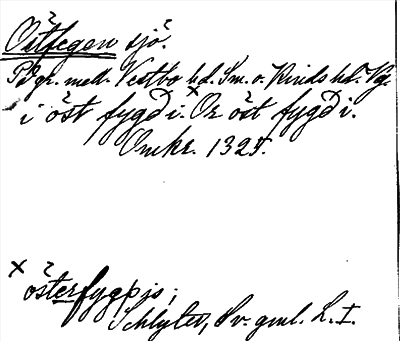 Östfegen sjö.
På gr. med. Vestbo hd. Sm. o. Kinds hd. Vg.
i öst fygd i. × Or öst fygd i.
Omkr. 1325.
× österfygþis;
Schlyter, Sv. gml. L. I.